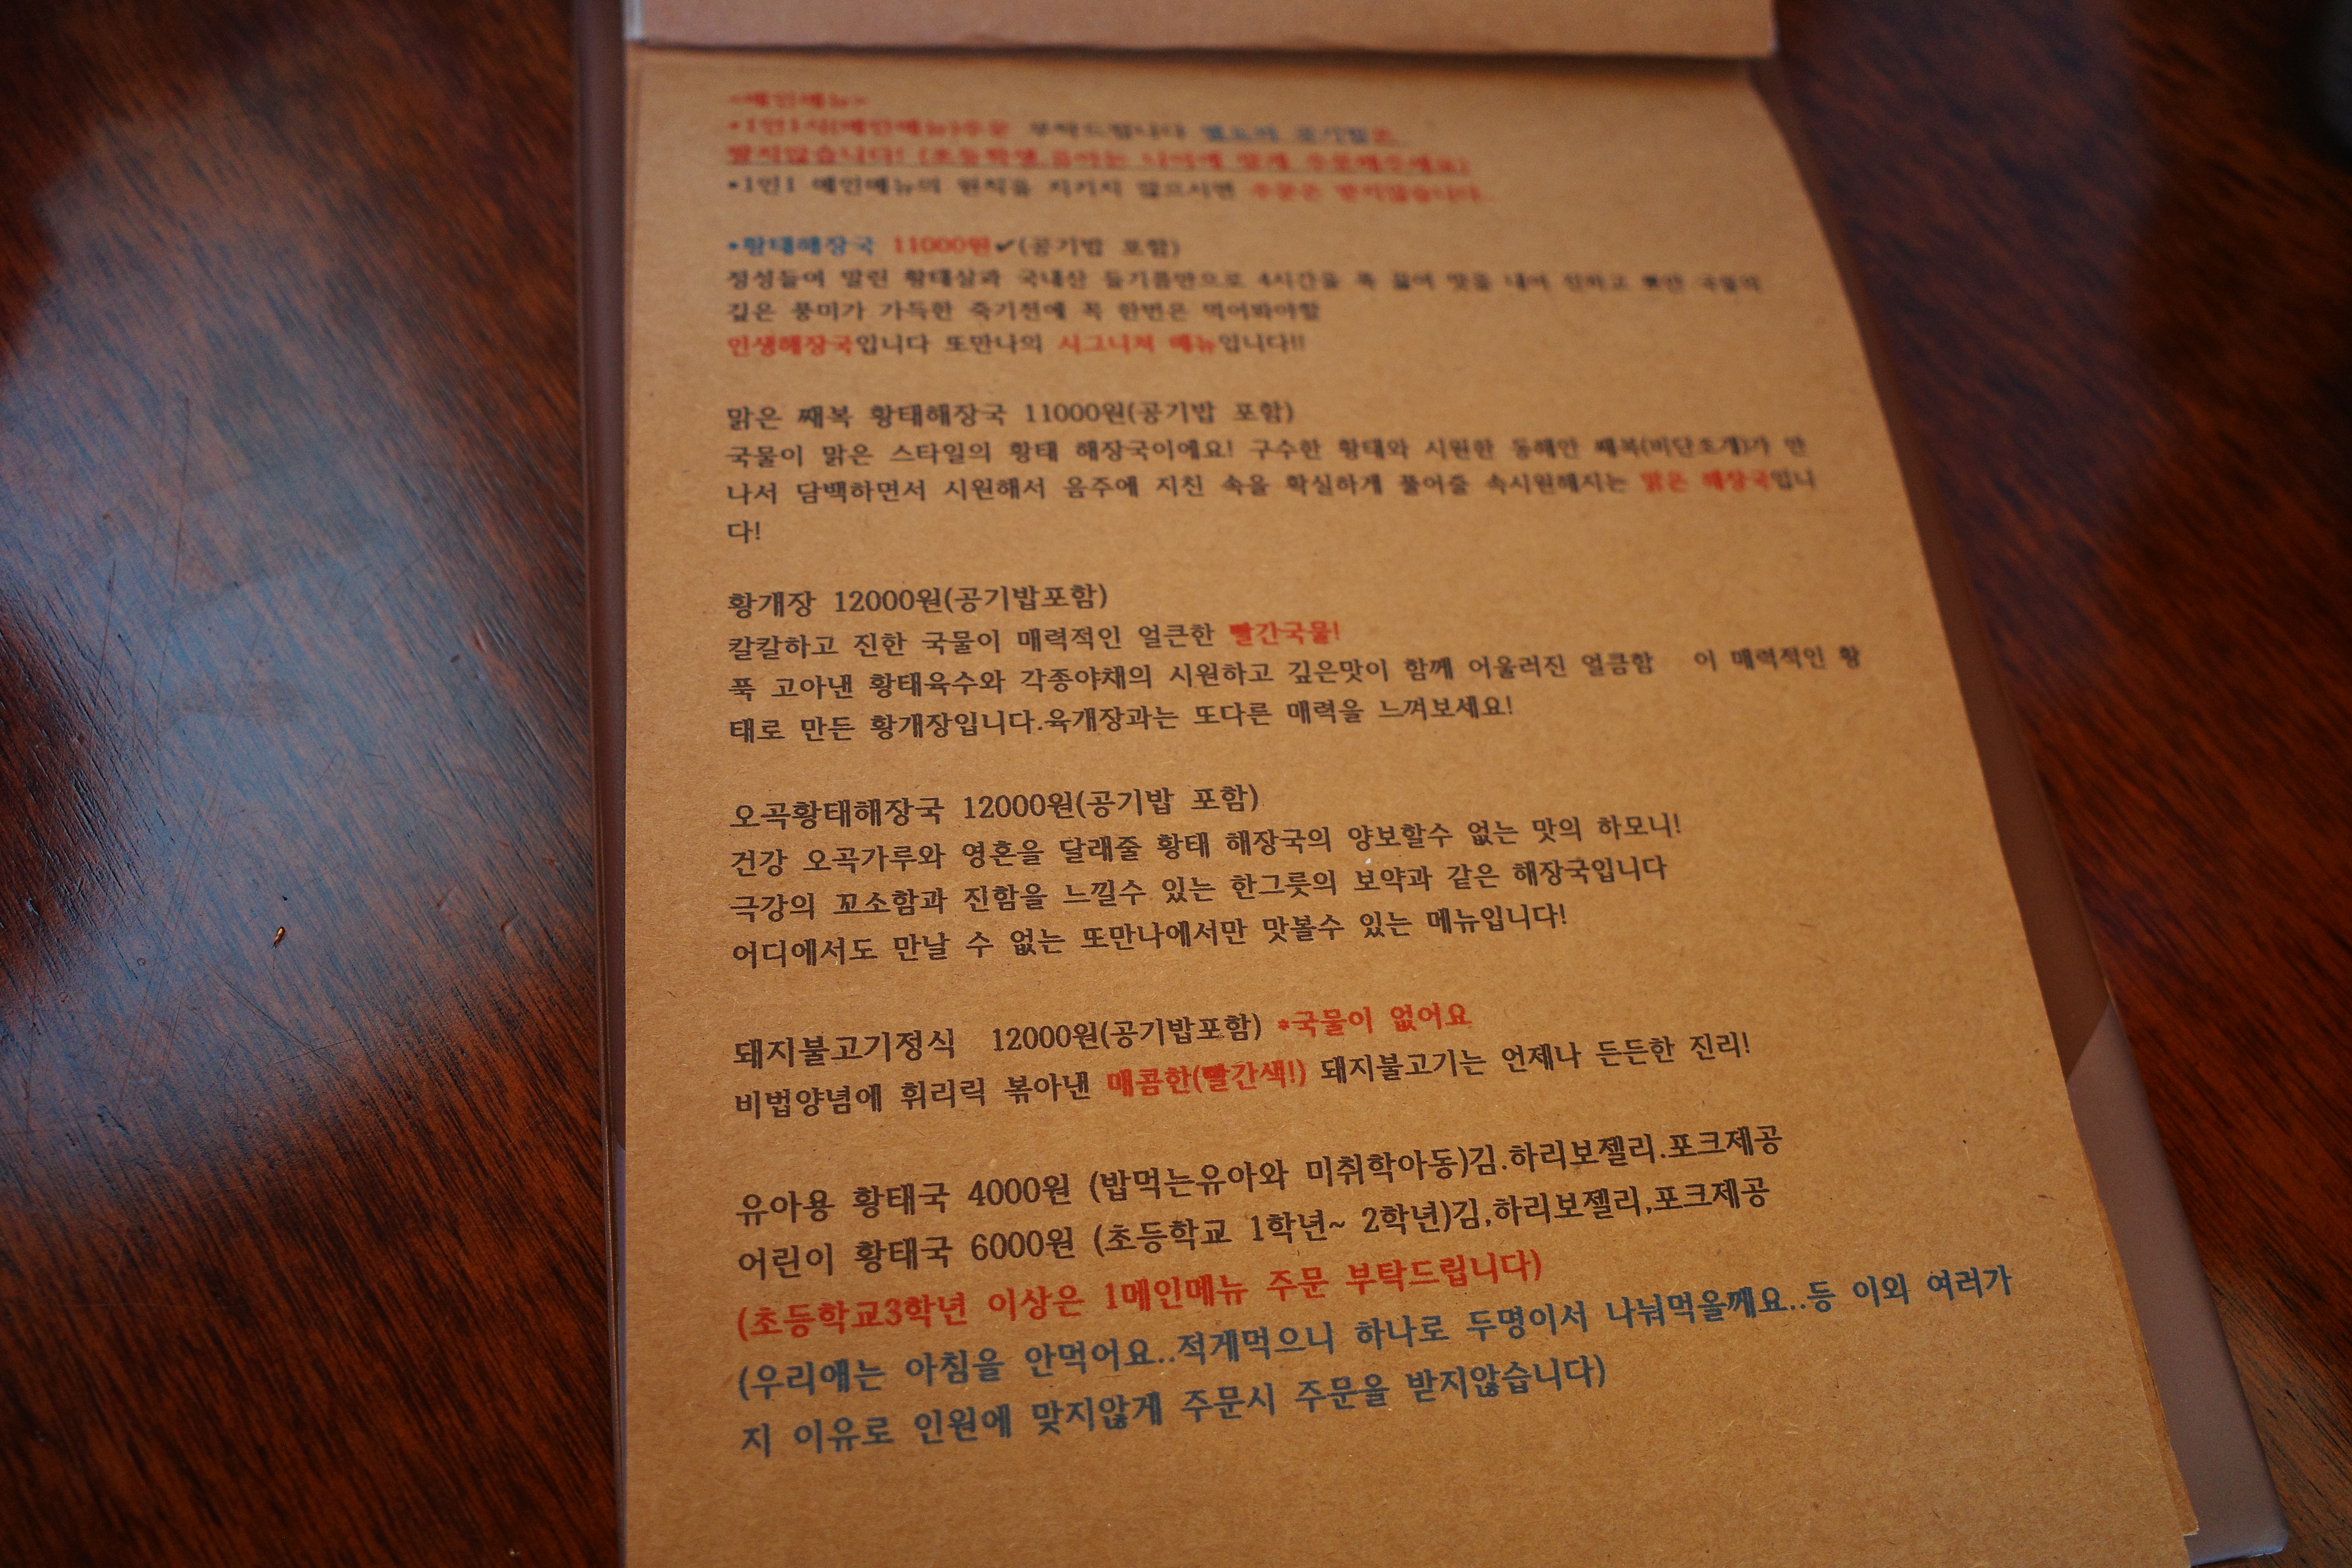 <메인메뉴>
*1인1식(메인메뉴)주문 부탁드립니다 별도의 공기밥은
받지않습니다! (초등학생 유아는 나이에 맞게 주문해주세요)
*1인1 메인메뉴의 원칙을 지키지 않으시면 주문은 받지않습니다.
*황태해장국 11000원✔(공기밥 포함)
정성들여 말린 황태살과 국내산 들기름만으로 4시간을 푹 끓여 맛을 내어 진하고 뽀얀 국물의
깊은 풍미가 가득한 죽기전에 꼭 한번은 먹어봐야할
인생해장국입니다 또만나의 시그니처 메뉴입니다!!
맑은 째복 황태해장국 11000원(공기밥 포함)
국물이 맑은 스타일의 황태 해장국이에요! 구수한 황태와 시원한 동해안 째복(비단조개)가 만
나서 담백하면서 시원해서 음주에 지친 속을 확실하게 풀어줄 속시원해지는 맑은 해장국입니
다!
황개장 12000원(공기밥포함)
칼칼하고 진한 국물이 매력적인 얼큰한 빨간국물!
푹 고아낸 황태육수와 각종야채의 시원하고 깊은맛이 함께 어울러진 얼큼함 이 매력적인 황
태로 만든 황개장입니다.육개장과는 또다른 매력을 느껴보세요!
오곡황태해장국 12000원(공기밥 포함)
건강 오곡가루와 영혼을 달래줄 황태 해장국의 양보할수 없는 맛의 하모니!
극강의 꼬소함과 진함을 느낄수 있는 한그릇의 보약과 같은 해장국입니다
어디에서도 만날 수 없는 또만나에서만 맛볼수 있는 메뉴입니다!
돼지불고기정식 12000원(공기밥포함) *국물이 없어요
비법양념에 휘리릭 볶아낸 매콤한(빨간색!) 돼지불고기는 언제나 든든한 진리!
유아용 황태국 4000원 (밥먹는유아와 미취학아동)김.하리보젤리.포크제공
어린이 황태국 6000원 (초등학교 1학년~ 2학년)김,하리보젤리,포크제공
(초등학교3학년 이상은 1메인메뉴 주문 부탁드립니다)
(우리애는 아침을 안먹어요..적게먹으니 하나로 두명이서 나눠먹을께요..등 이외 여러가
지 이유로 인원에 맞지않게 주문시 주문을 받지않습니다)